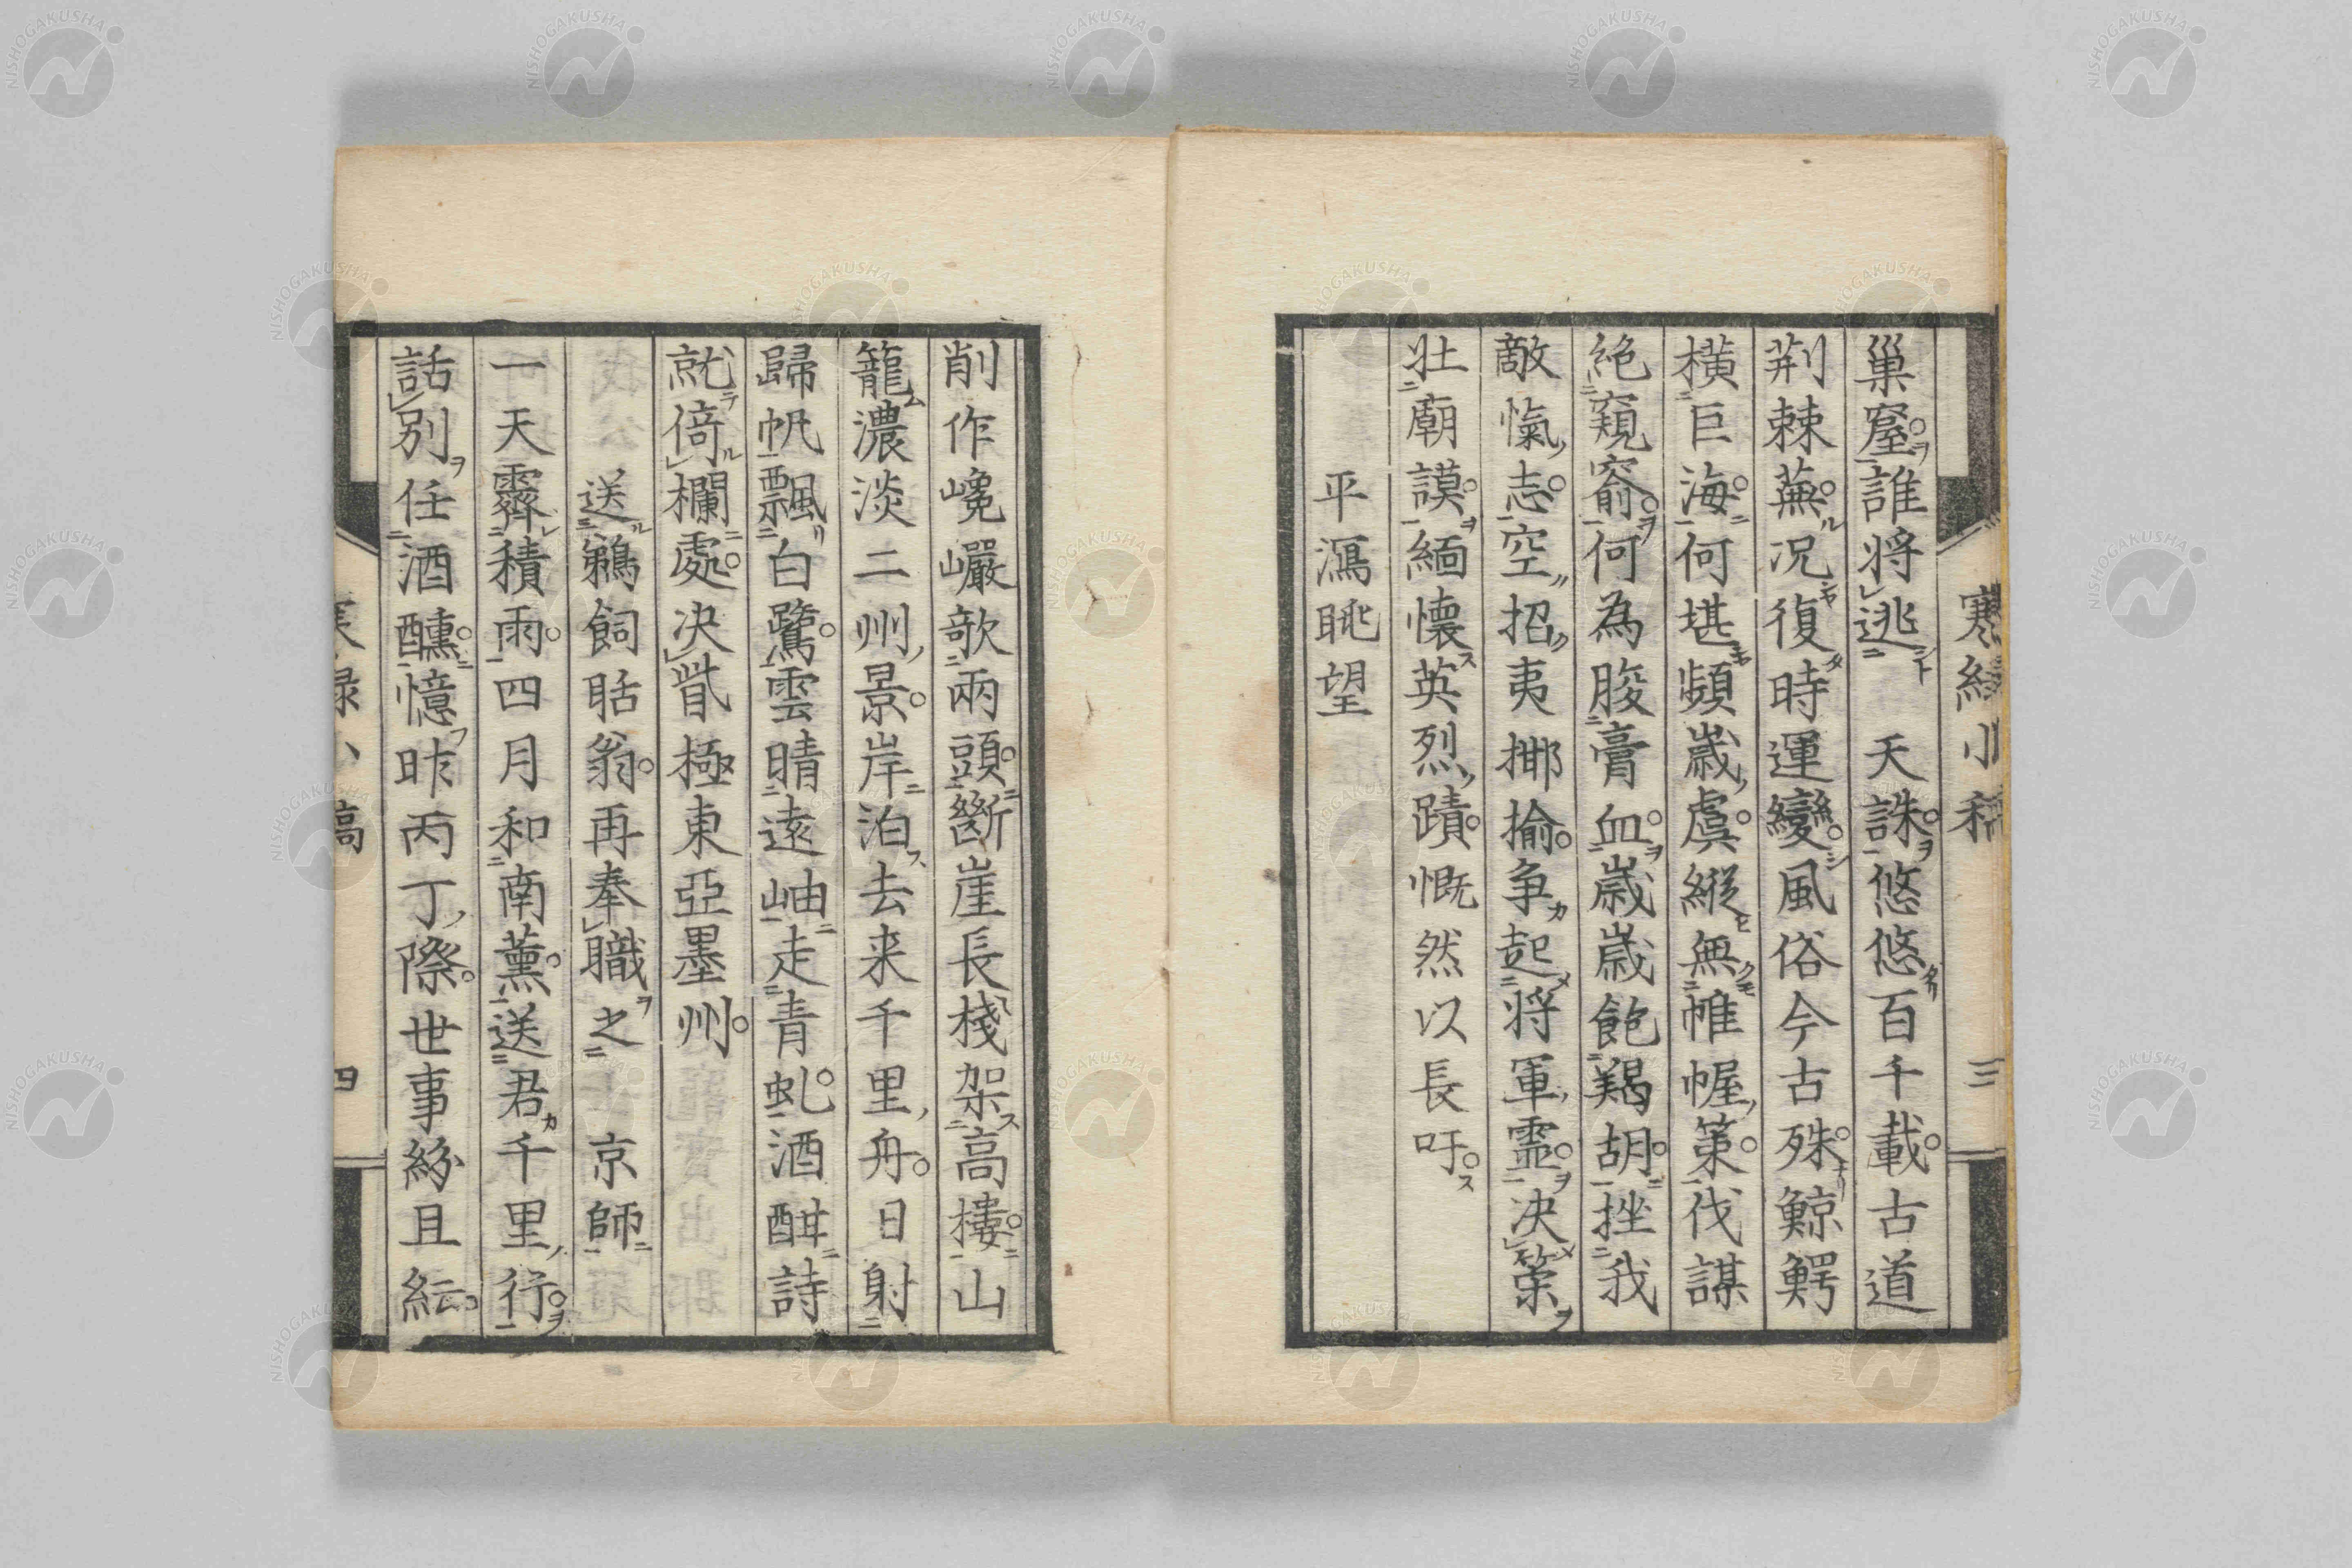 寒緑小稿 三
巢窟誰將逃 天誅悠悠百千載古道
荆棘蕪况復時運變風俗今古殊鯨鰐
橫巨海何堪頻歲虞縱無帷幄策伐謀
絶窺窬何為朘膏血歲歲飽羯胡挫我
敵愾志空招夷揶揄爭起將軍靈决策
壮廟謨緬懷英烈蹟慨然以長吁
平潟眺望
削作巉巖歆兩頭斷崖長棧架高樓山
籠濃淡二州景岸泊去来千里舟日射
歸帆飄白鷺雲晴遠岫走青虬酒酣詩
就倚欄處决眥極東亞墨州
送鵜飼聒翁再奉職之 京師
一天霽積雨四月和南薫送君千里行
話別任酒醺憶昨丙丁際世事紛且紜
緑小稿 四
NISHOGAKUSHA